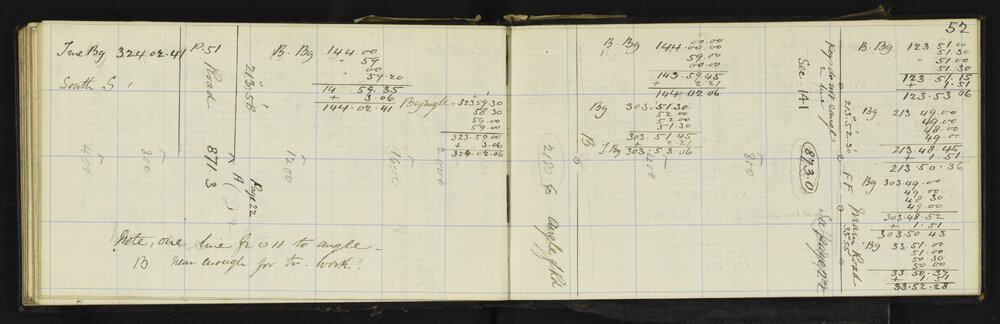 True Bg 324.02.41
South
p. 51
Road 871.3
213.58
A
Page 22
B. Bg 144.00
59
00
59.20
59.35
+ 3.06
144.02.41
Bg angle = 323.59.30
58.30
59.00
59.00
323.59.00
+ 3.06
324.02.06
400
800
1200
1600
2000
Note, one line for to angle -
B near enough for tr. work!
52
B. Bg 144.00.00
00.00
59.00
00.00
143.59.45
+ 2.21
144.02.06
Bg 303.51.30
52.00
52.00
51.30
303.51.45
+ 2.21
T Bg 303.53.06
B
2180
Angle of Rd
400
800
Sec 141
873.0
See page 22
213.52.30
F F
Road
33.55
B. Bg 123.51.00
51.30
51.00
51.30
123.51.15
+ 1.51
123.53.06
Bg 213.49.00
49.00
48.00
49.00
213.48.45
+ 1.51
213.50.36
Bg 303.49.00
49.00
48.30
49.00
303.48.52
+ 1.51
303.50.43
Bg 33.51.00
51.00
50.30
50.00
33.50.37
+ 1.51
33.52.28